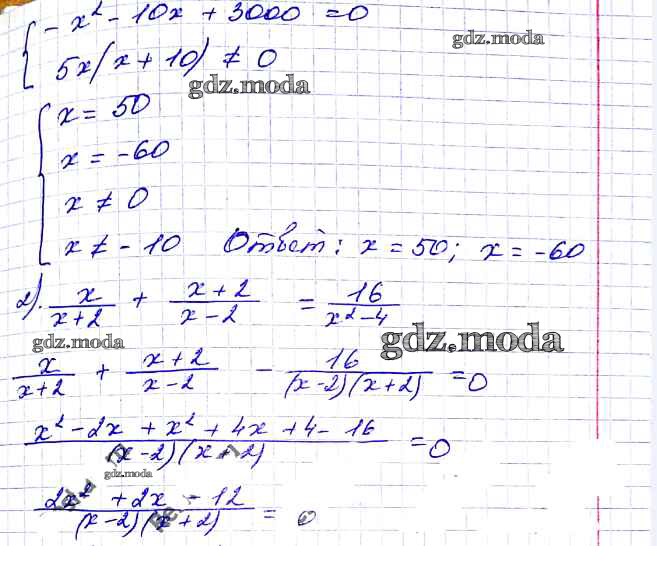 - x² - 10x + 3000 = 0
gdz.moda
5x(x + 10) ≠ 0
gdz.moda
x = 50
x = -60
x ≠ 0
x ≠ - 10 Ответ: x = 50; x = -60
2). x/(x+2) + (x+2)/(x-2) = 16/(x²-4)
gdz.moda gdz.moda
x/(x+2) + (x+2)/(x-2) - 16/((x-2)(x+2)) = 0
(x² - 2x + x² + 4x + 4 - 16)/((x-2)(x+2)) = 0
gdz.moda
(2x² + 2x - 12)/((x-2)(x+2)) = 0